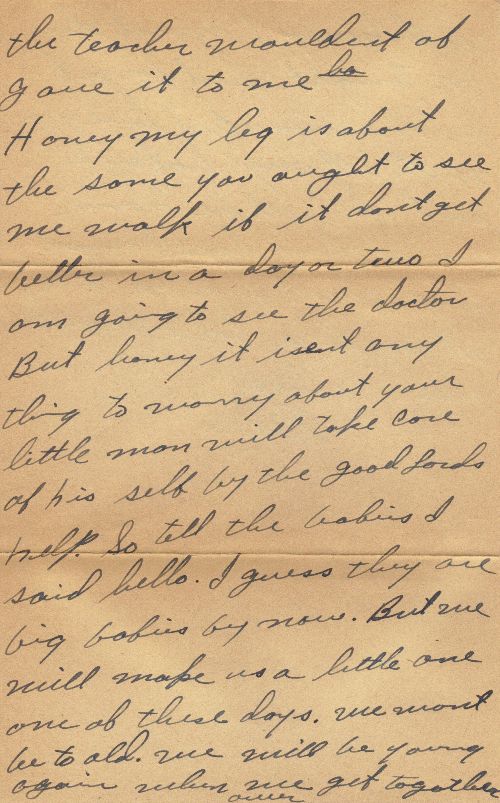 the teacher wouldent of
gave it to me ha
Honey my leg is about
the same you ought to see
me walk if it dont get
better in a day or two I
am going to see the doctor
But honey it isent any
thing to worry about your
little man will take care
of his self by the good Lords
help. So tell the babies I
said hello. I guess they are
big babies by now. But we
will make us a little one
one of these days. we wont
be to old. we will be young
again when we get together
over